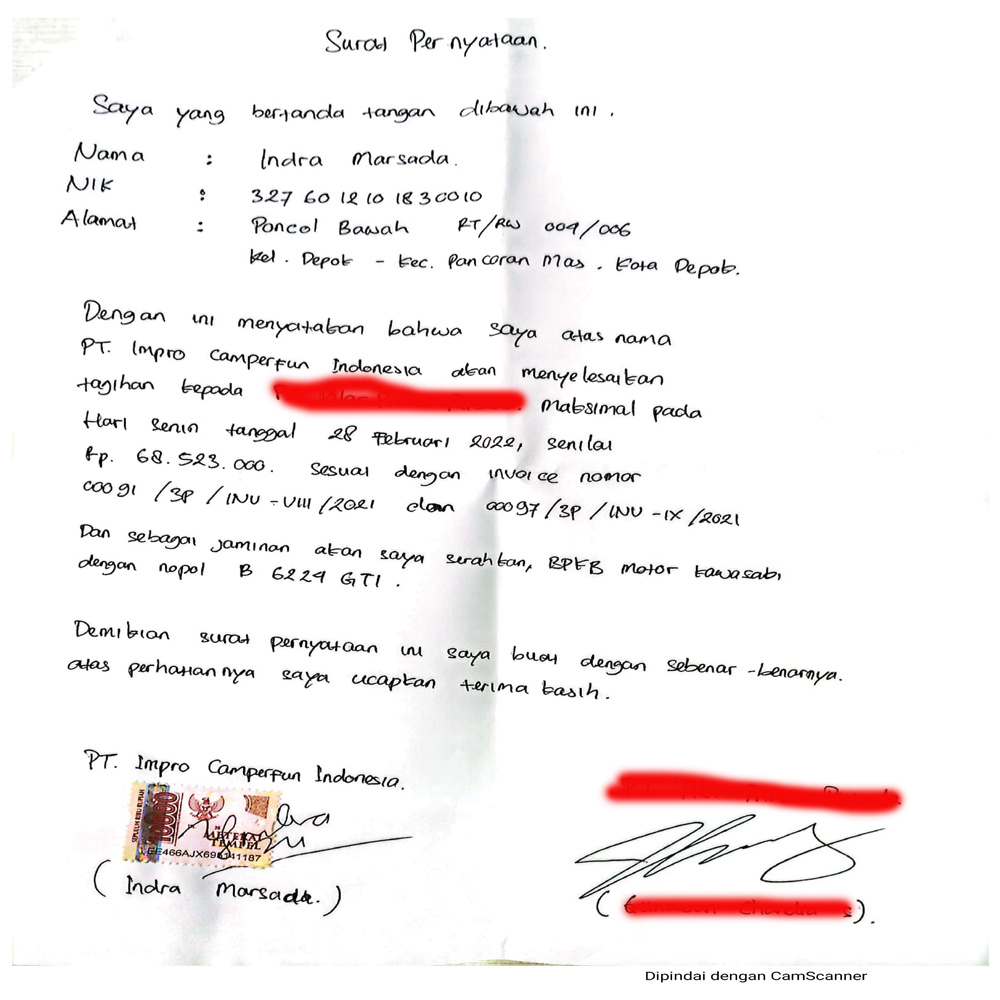 Surat Pernyataan.
Saya yang bertanda tangan dibawah ini.
Nama : Indra Marsada.
NIK : 327 60 12 10 18 30010
Alamat : Poncol Bawah RT/RW 004/006
Kel. Depok - Kec. Pancoran Mas. Kota Depok.
Dengan ini menyatakan bahwa saya atas nama
PT. Impro Camperfun Indonesia akan menyelesaikan
tagihan kepada maksimal pada
Hari senin tanggal 28 Februari 2022, senilai
Rp. 68.523.000. sesuai dengan invoice nomor
00091 /3P / INV - VIII /2021 dan 00097/3P / INV -IX /2021
Dan sebagai jaminan akan saya serahkan, BPKB motor kawasaki
dengan nopol B 6224 GTI.
Demikian surat pernyataan ini saya buat dengan sebenar-benarnya.
atas perhatiannya saya ucapkan terima kasih.
PT. Impro Camperfun Indonesia.
SEPULUH RIBU RUPIAH
10000
METERAI
TEMPEL
(Indra Marsada.)
Dipindai dengan CamScanner